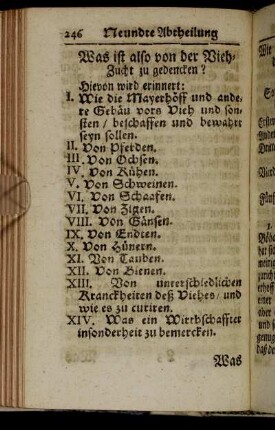 246 Neundte Abtheilung
Was ist also von der Vieh-
Zucht zu gedencken?
Hievon wird erinnert:
I. Wie die Mayerhöff und ande-
re Gebäu vors Vieh und son-
sten / beschaffen und bewahrt
seyn sollen.
II. Von Pferden.
III. Von Ochsen.
IV. Von Kühen.
V. Von Schweinen.
VI. Von Schaafen.
VII. Von Zigen.
VIII. Von Gänsen.
IX. Von Endten.
X. Von Hünern.
XI. Von Tauben.
XII. Von Bienen.
XIII. Von unterschiedlichen
Kranckheiten deß Viehes / und
wie es zu curiren.
XIV. Was ein Wirthschaffter
insonderheit zu bemercken.
Was